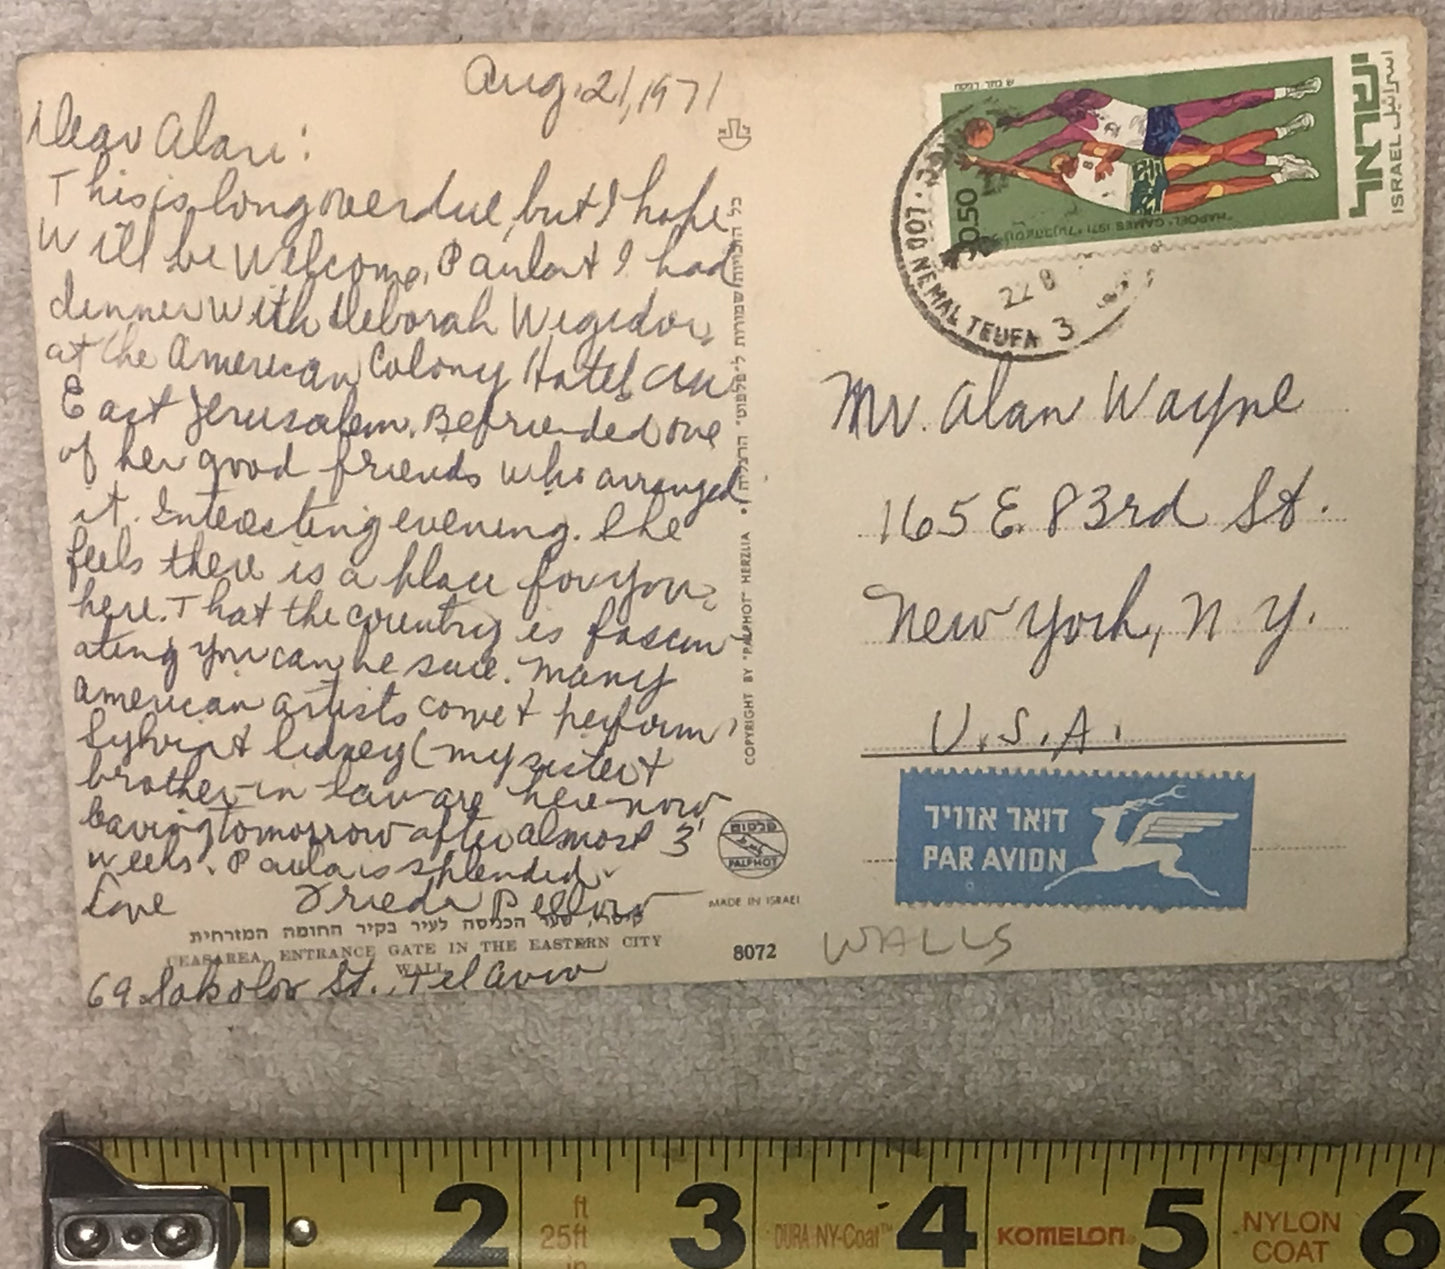 Aug. 21, 1971
Dear Alan:
This is long overdue, but I hope
Will be Welcome. Paula & I had
dinner With Deborah Wigidor
at the American Colony Hotel in
East Jerusalem. Befriended one
of her good friends who arranged
it. Interesting evening. She
feels there is a place for you
here. That the country is fascin
ating you can be sure. Many
American artists come & perform
Sylvia & Sidney (my sister &
brother-in law are here now
leaving tomorrow after almost 3
weeks. Paula is splendid
Love Frieda
קיסריה, שער הכניסה לעיר בקיר החומה המזרחית
CEASAREA, ENTRANCE GATE IN THE EASTERN CITY
WALL
69 Sokolov St., Tel Aviv
כל הזכויות שמורות ל"פלפוט" הרצליה •
COPYRIGHT BY "PALPHOT" HERZLIA
פלפוט
PALPHOT
MADE IN ISRAEL
8072
ישראל
اسرائيل
ISRAEL
0.50
"HAPOEL" GAMES 1971
LOD
NEMAL TEUFA 3
22 8
Mr. Alan Wayne
165 E. 83rd St.
New York, N. Y.
U.S.A.
דואר אוויר
PAR AVION
WALLS
1 2 3 4 5 6
ft
25ft
in
DURA NY-Coat™
KOMELON
NYLON
COAT